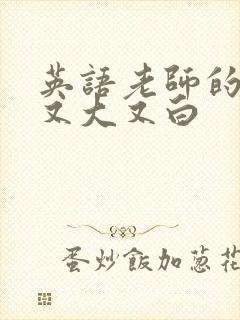 英語老師的
又大又白
蛋炒飯加蔥花